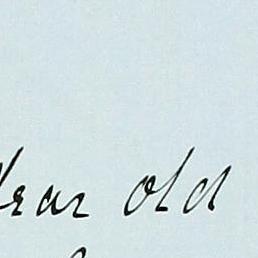 year old